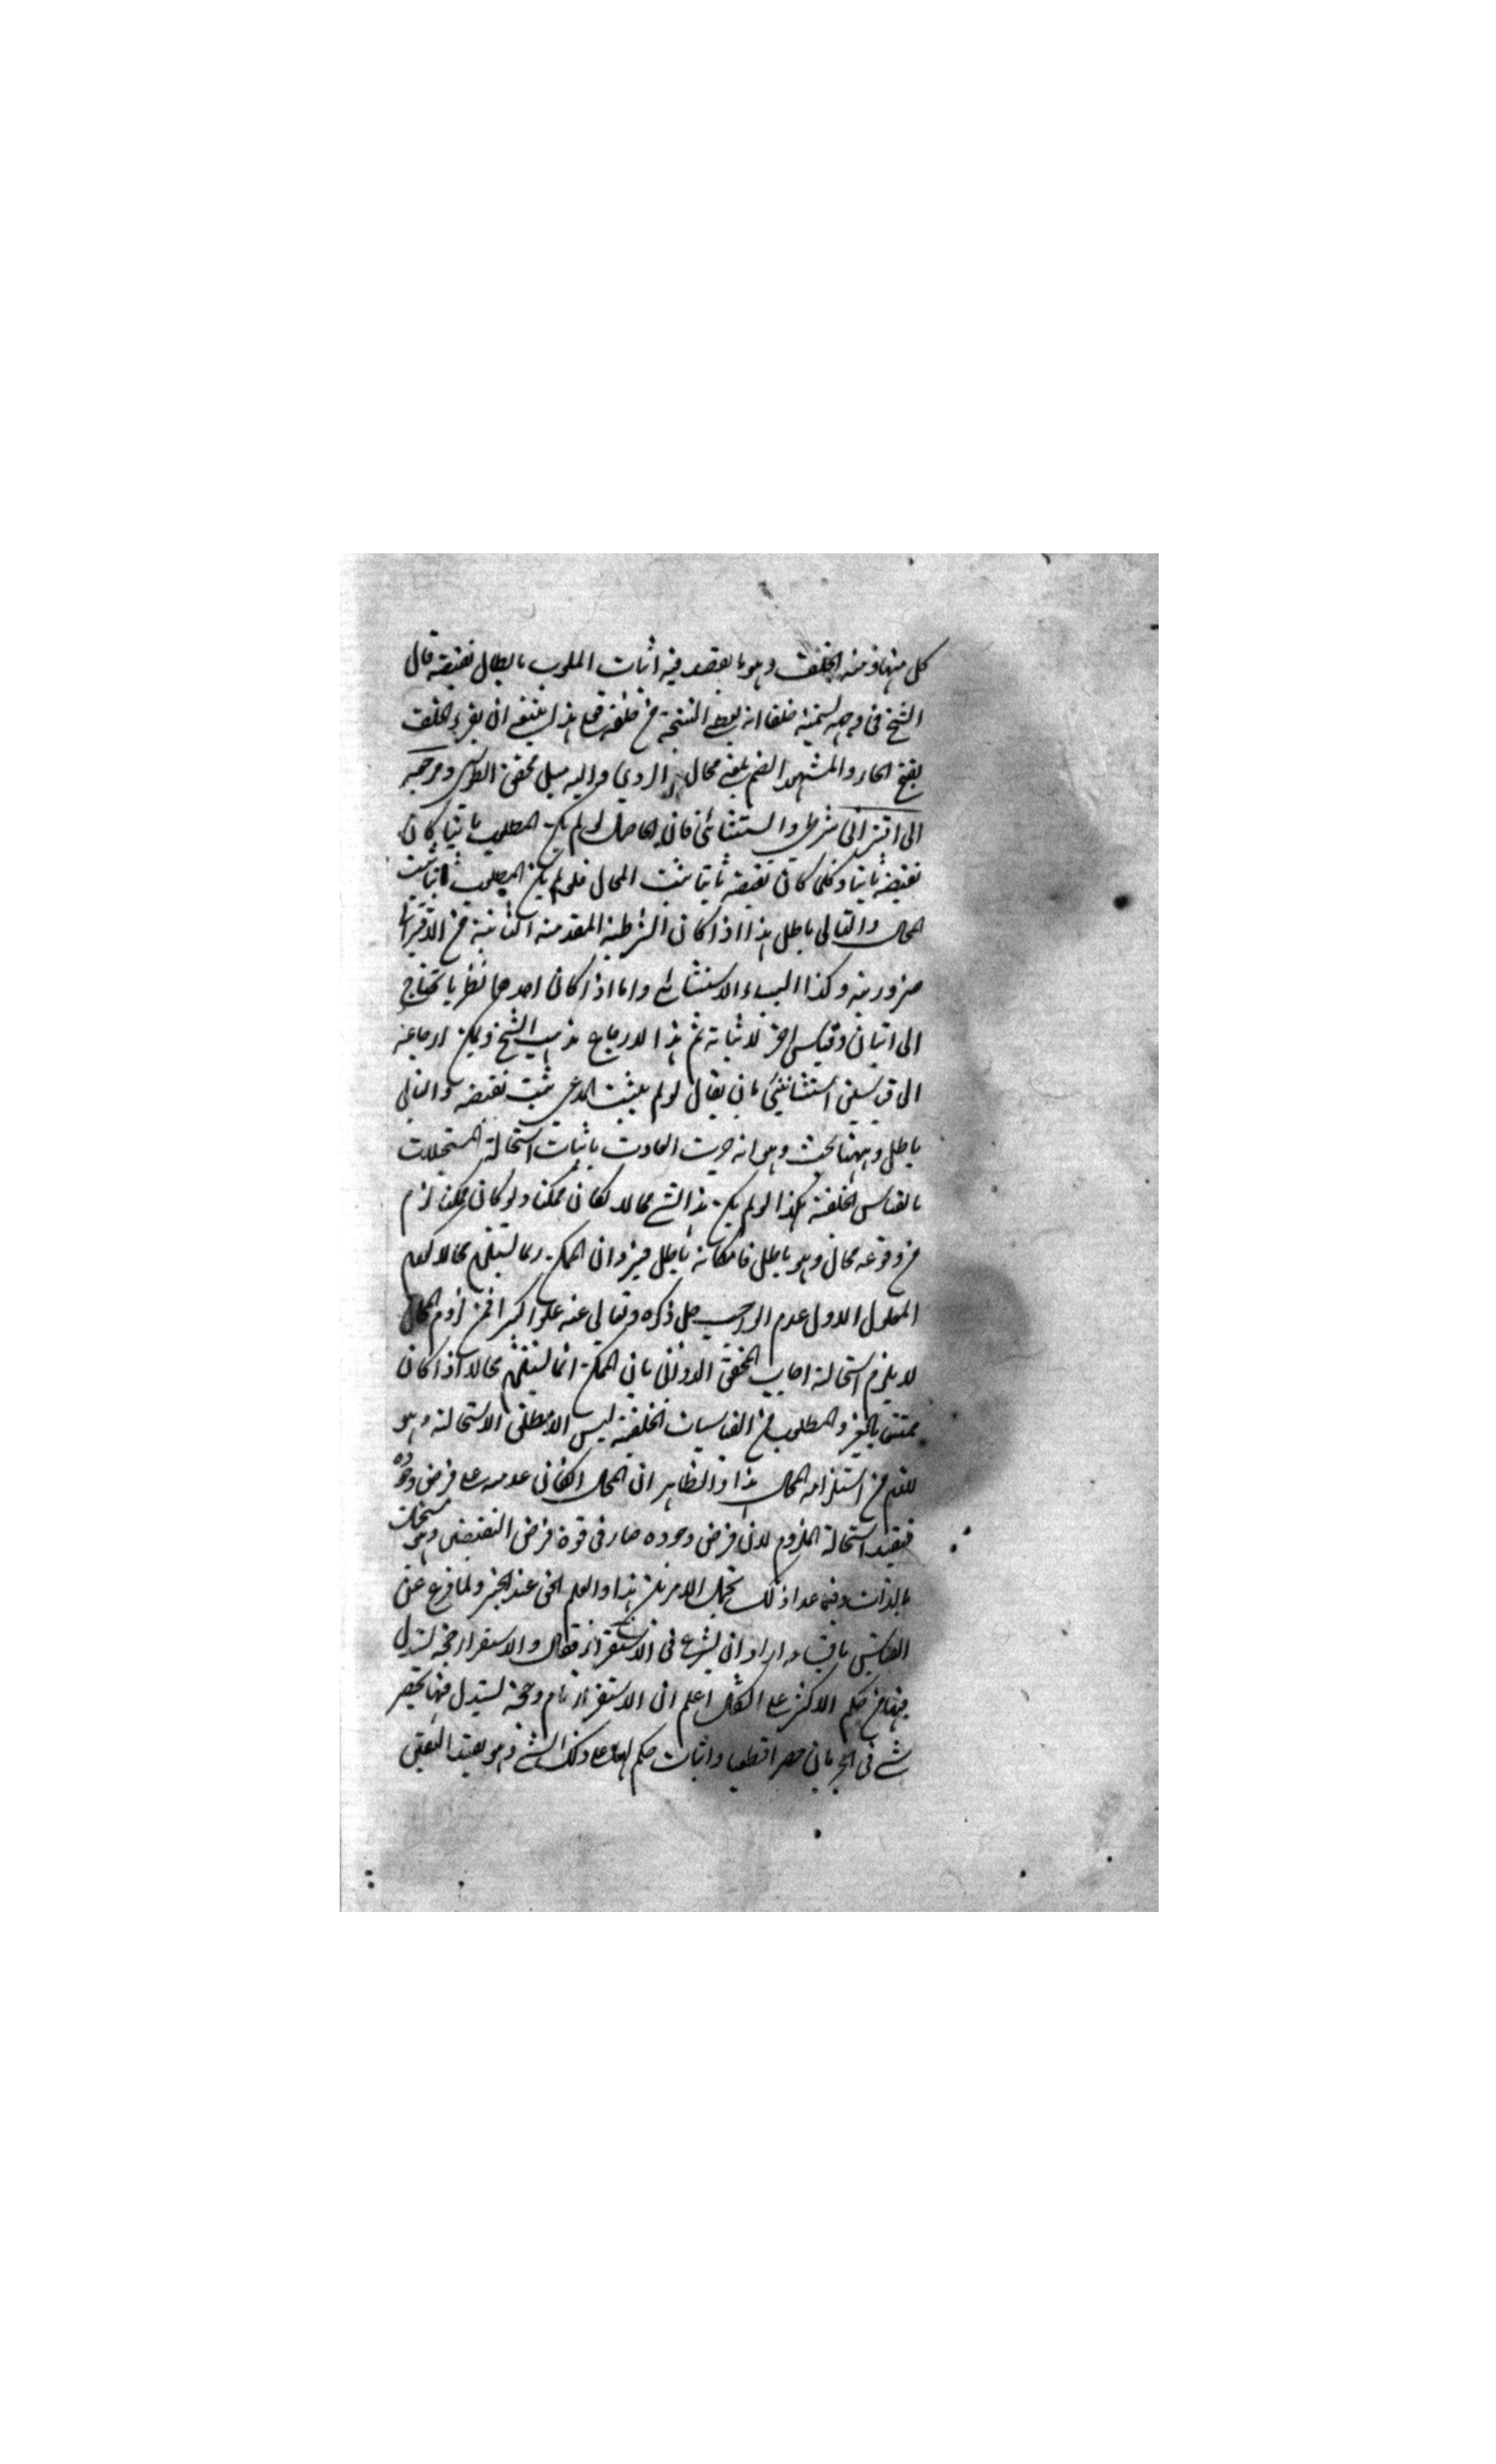 كل منهما ومنه الخلف وهو ما يقصد فيه اثبات الملوب بابطال نقيضه قال
الشيخ فى وجه تسميته خلفا انه النتيجة من خلفه فعلى هذا ينبغى ان يقرء الخلف
بفتح الخاء والمشهور الضم بمعنى محال الردي واليه ميل محقق الطوسى ومرجعه
الى اقترانى شرطى واستثنائى فان الحاصل لو لم يكن المطلوب ثابتا كان
نقيضه ثابتا وكلما كان نقيضه ثابتا ثبت المحال فلو لم يكن المطلوب ثابتا ثبت
المحال والتالى باطل هذا اذا كان الشرطية المقدمة الثانية من الاقترانى
ضرورية وكذا الاستثنائى واما اذا كان احدهما نظريا تحتاج
الى اتيان وقياس اخر لاثباته ثم هذا الارجاع مذهب الشيخ ويمكن ارجاعه
الى قياسين استثنائيين بان يقال لو لم يثبت المدعى ثبت نقيضه والتالى
باطل وههنا بحث وهو انه جرت العادت باثبات استحالة المستحيلات
بالقياس الخلفية هكذا لو لم يكن هذا الشئ محالا لكان ممكنا ولو كان ممكنا لزم
من وقوعه محال وهو باطل فامكانه باطل فيرد ان الممكن ربما يستلزم محالا كعدم
المعلول الاول عدم الواجب جل ذكره وتعالى عنه علوا كبيرا فمن لزوم المحال
لا يلزم استحالة اجاب المحقق الدوانى بان الممكن انما يستلزم محالا اذا كان
ممتنع بالغير والمطلوب من القياسات الخلفية ليس الا مطلق الاستحالة وهو
يلزم من استلزامه المحال هذا والظاهر ان المحال ان كان عدمه على فرض وجوده
فيفيد استحالة الملزوم لان فرض وجوده صار فى قوة فرض النقيضين وهو مستحيلة
بالذات وفيما عدا ذلك يحتمل الامرين هذا والعلم الحق عند الخبير ولما فرغ عن
القياس باقسامه اراد ان يشرع فى الاستقراء فقال والاستقراء حجة يستدل
فيها من حكم الاكثر على الكل اعلم ان الاستقراء تام وحجة يستدل فيها بحصر
شئ فى الجزئيات حصرا قطعيا واثبات حكم لها على ذلك الشئ وهو يفيد اليقين